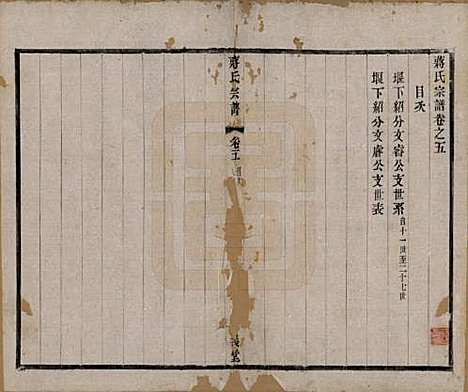 蔣氏宗譜卷之五
目次
堰下紹分文睿公支世系自十一世至二十七世
堰下紹分文睿公支世表
蔣氏宗譜
卷五
目次